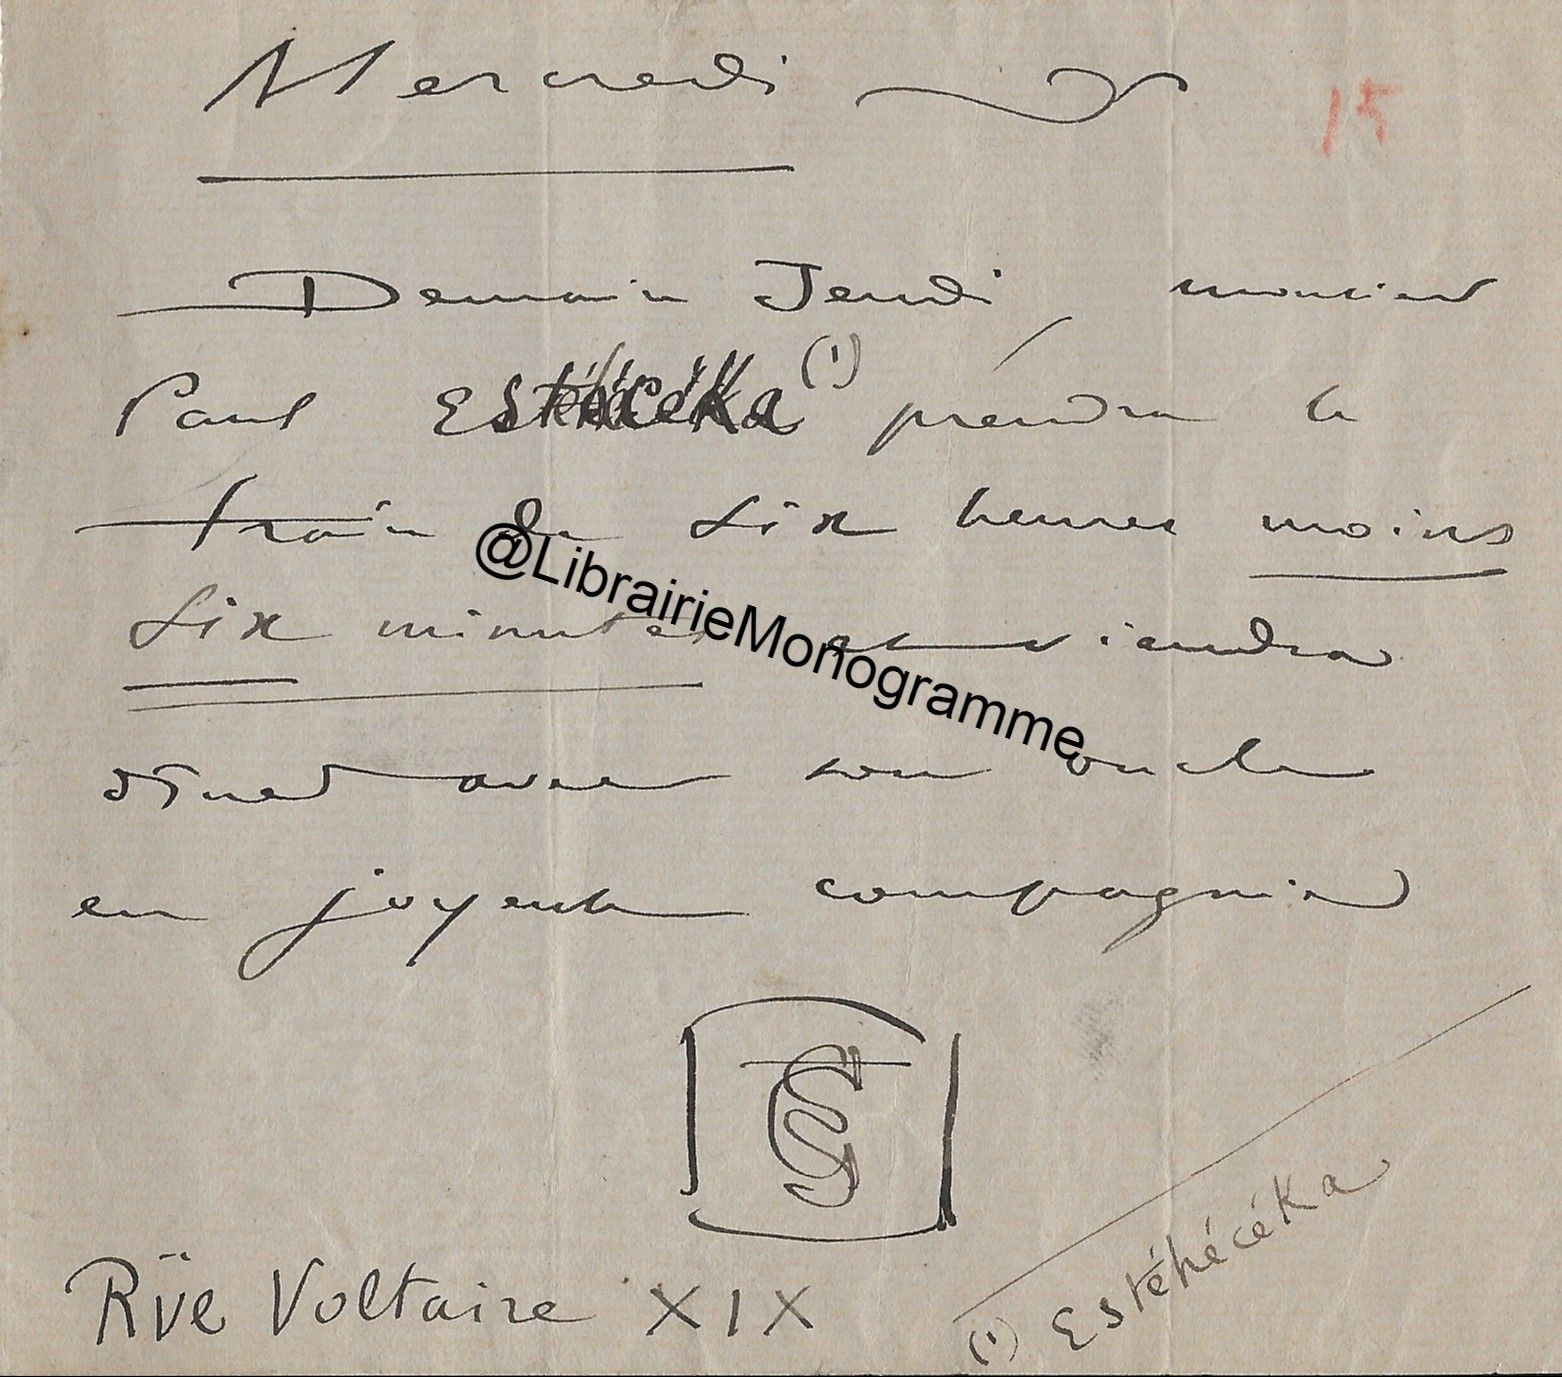 Mercredi
15
Demain Jeudi, monsieur
Paul Estéhécéka (1) prendra le
train de six heures moins
six minutes et viendra
@LibrairieMonogramme
dîner avec son oncle
en joyeuse compagnie
Rüe Voltaire XIX
(1) Estéhécéka